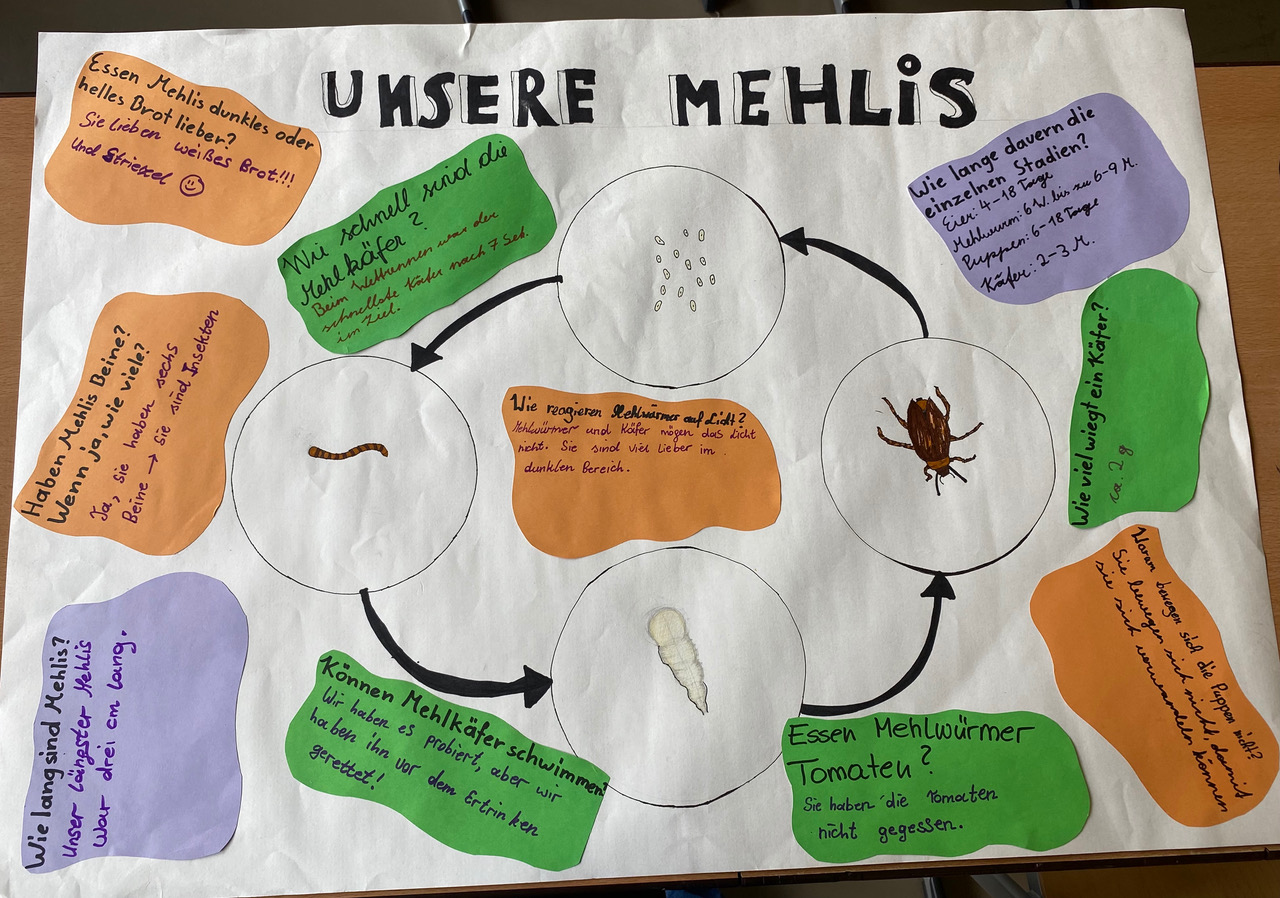 UNSERE MEHLIS
Essen Mehlis dunkles oder
helles Brot lieber?
Sie lieben weißes Brot!!!
und Striezel ☺
Wie schnell sind die
Mehlkäfer?
Beim Wettrennen war der
schnellste Käfer nach 7 Sek.
im Ziel.
Wie lange dauern die
einzelnen Stadien?
Eier: 4-18 Tage
Mehlwurm: 6 W. bis zu 6-9 M.
Puppen: 6-18 Tage
Käfer: 2-3 M.
Haben Mehlis Beine?
Wenn ja, wie viele?
Ja, sie haben sechs
Beine → sie sind Insekten
Wie reagieren Mehlwürmer auf Licht?
Mehlwürmer und Käfer mögen das Licht
nicht. Sie sind viel lieber im
dunklen Bereich.
Wie viel wiegt ein Käfer?
ca. 2 g
Wie lang sind Mehlis?
Unser längster Mehlis
war drei cm lang.
Können Mehlkäfer schwimmen?
Wir haben es probiert, aber wir
haben ihn vor dem Ertrinken
gerettet!
Essen Mehlwürmer
Tomaten?
Sie haben die Tomaten
nicht gegessen.
Warum bewegen sich die Puppen nicht?
Sie bewegen sich nicht, damit
sie sich verwandeln können